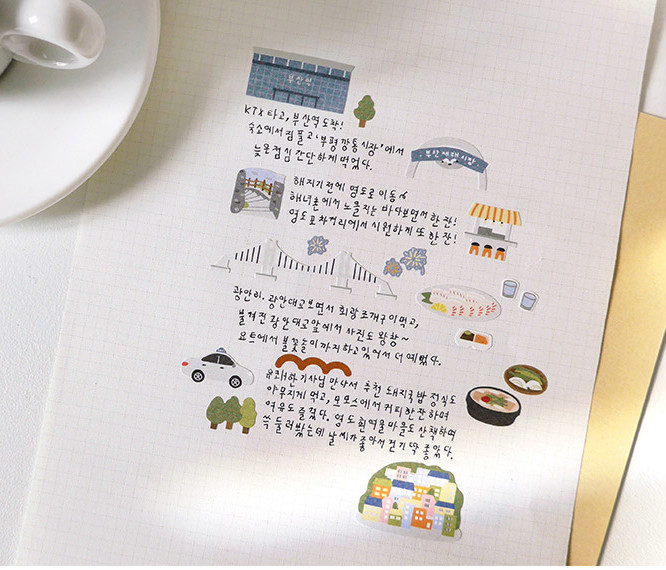 부산역
KTX 타고, 부산역 도착!
숙소에서 짐 풀고 '부평깡통시장'에서
늦은 점심 간단하게 먹었다.
부산 야때시장
해지기전에 영도로 이동~
해녀촌에서 노을지는 바다보면서 한잔!
영도포차거리에서 시원하게 또 한잔!
광안리. 광안대교보면서 회랑 조개구이먹고,
불켜진 광안대교 앞에서 사진도 왕창~
요트에서 불꽃놀이까지하고있어서 더 예뻤다.
유쾌한 기사님 만나서 추천 돼지국밥 정식도
야무지게 먹고, 모모스에서 커피한잔하며
여유도 즐겼다. 영도 흰여울마을도 산책하며
쓱 둘러봤는데 날씨가 좋아서 걷기 딱 좋았다.